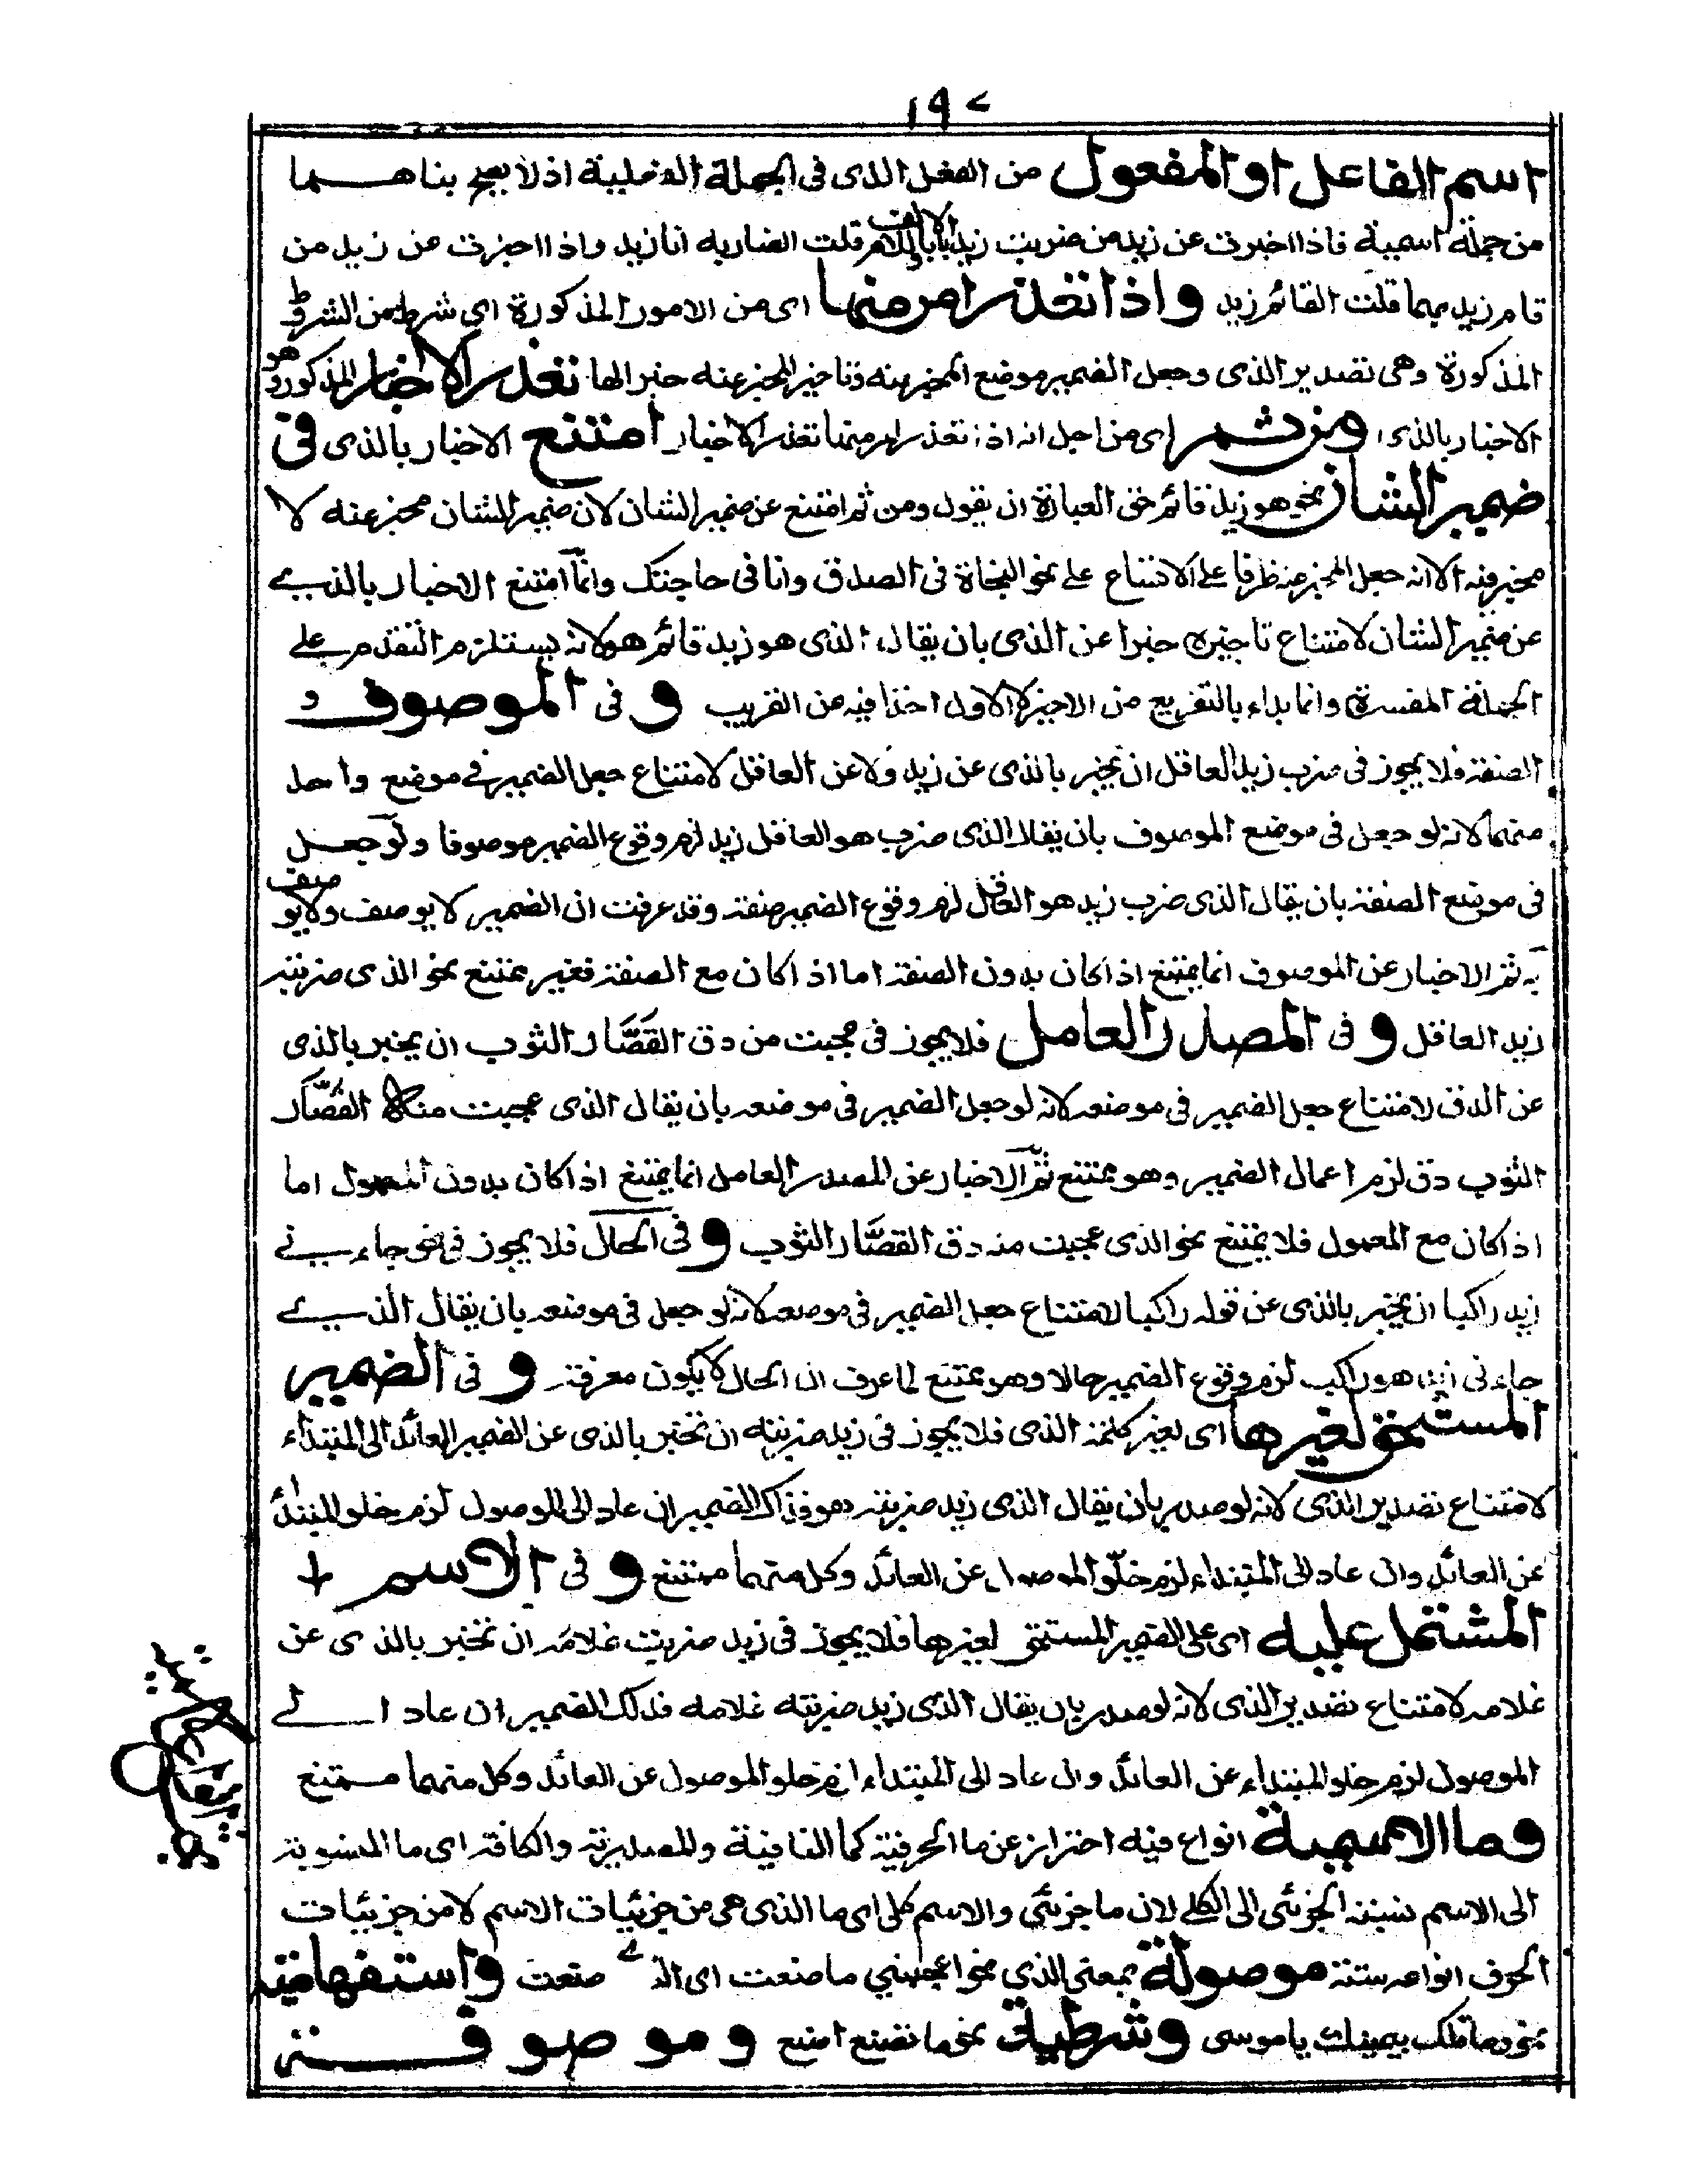 ١٩٢
اسم الفاعل او المفعول من الفعل الذى فى الجملة الفعلية اذ لا يصح بناهما
من جملة اسمية فاذا اخبرت عن زيد من ضربت زيدا بالالف واللام قلت الضاربه انا زيد واذا اخبرت من زيد من
قام زيد بهما قلت القائم زيد واذا تعذر امر منها اى من الامور المذكورة اى شرط من الشروط
المذكورة وهى تصدير الذى وجعل الضمير موضع المخبر عنه وتاخير المخبر عنه خبرا لها تعذر الاخبار المذكور وهو
الاخبار بالذى ومن ثم اى من اجل انه اذا تعذر امر منها تعذر الاخبار امتنع الاخبار بالذى فى
ضمير الشان نحو هو زيد قائم حق العبارة ان يقول ومن ثم امتنع عن ضمير الشان لان ضمير الشان مخبر عنه لا
مخبر فيه الا انه جعل المخبر عنه ظرفا على الاتساع على نحو النجاة فى الصدق وانا فى حاجتك وانما امتنع الاخبار بالذى
عن ضمير الشان لامتناع تاخيره خبرا عن الذى بان يقال الذى هو زيد قائم هو لانه يستلزم التقدم على
الجملة المفسرة وانما بداء بالتفريع من الاخير لا الاول اخذا فيه من القريب و فى الموصوف و
الصفة فلا يجوز فى ضرب زيد العاقل ان يخبر بالذى عن زيد ولا عن العاقل لامتناع جعل الضمير فى موضع واحد
منهما لانه لو جعل فى موضع الموصوف بان يقال الذى ضرب هو العاقل زيد لزم وقوع الضمير موصوفا ولو جعل
فى موضع الصفة بان يقال الذى ضرب زيد هو العاقل لزم وقوع الضمير صفة وقد عرفت ان الضمير لا يوصف ولا يوصف
به ثم الاخبار عن الموصوف انما يمتنع اذا كان بدون الصفة اما اذا كان مع الصفة فغير ممتنع نحو الذى ضربته
زيد العاقل و فى المصدر العامل فلا يجوز فى عجبت من دق القَصَّار الثوب ان يخبر بالذى
عن الدق لامتناع جعل الضمير فى موضعه لانه لو جعل الضمير فى موضعه بان يقال الذى عجبت منه القَصَّار
الثوب دق لزم اعمال الضمير وهو ممتنع ثم الاخبار عن المصدر العامل انما يمتنع اذا كان بدون المعمول اما
اذا كان مع المعمول فلا يمتنع نحو الذى عجبت منه دق القصَّار الثوب و فى الحال فلا يجوز فى نحو جاءنى
زيد راكبا ان يخبر بالذى عن قوله راكبا لامتناع جعل الضمير فى موضعه لانه لو جعل فى موضعه بان يقال الذى
جاءنى زيد هو راكب لزم وقوع الضمير حالا وهو ممتنع لما عرف ان الحال لا يكون معرفة و فى الضمير
المستحق لغيرها اى لغير كلمة الذى فلا يجوز فى زيد ضربته ان تخبر بالذى عن الضمير العائد الى المبتداء
لامتناع تصدير الذى لانه لو صدر بان يقال الذى زيد ضربته هو فذاك الضمير ان عاد الى الموصول لزم خلو المبتداء
عن العائد وان عاد الى المبتداء لزم خلّو الموصول عن العائد وكل منهما ممتنع و فى الاسم
المشتمل عليه اى على الضمير المستحق لغيرها فلا يجوز فى زيد ضربت غلامه ان تخبر بالذى عن
غلامه لامتناع تصدير الذى لانه لو صدر بان يقال الذى زيد ضربته غلامه فذلك الضمير ان عاد الى
الموصول لزم خلو المبتداء عن العائد وان عاد الى المبتداء لزم خلو الموصول عن العائد وكل منهما ممتنع
وما الاسمية انواع فيه احتراز عن ما الحرفية كما النافية والمصدرية والكافة اى ما المنسوبة
الى الاسم نسبة الجزئى الى الكلى لان ما جزئى والاسم كلى اى ما الذى هى من جزئيات الاسم لا من جزئيات
الحرف انواعه ستة موصولة بمعنى الذى نحو اعجبنى ما صنعت اى الذى صنعت واستفهامية
نحو وما تلك بيمينك يا موسى وشرطية نحو ما تصنع اصنع وموصوفة